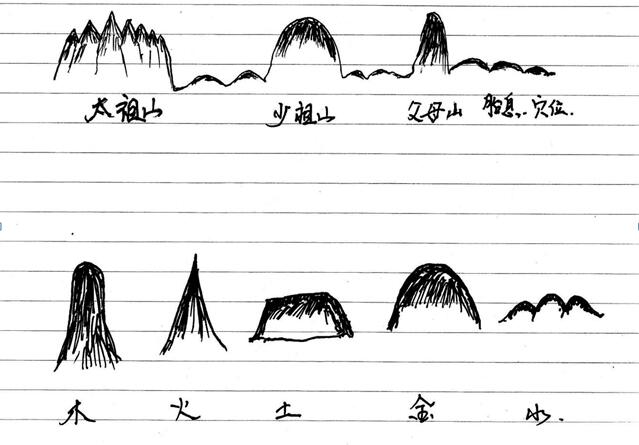 太祖山 少祖山 父母山 胎息.穴位.
木 火 土 金 水.